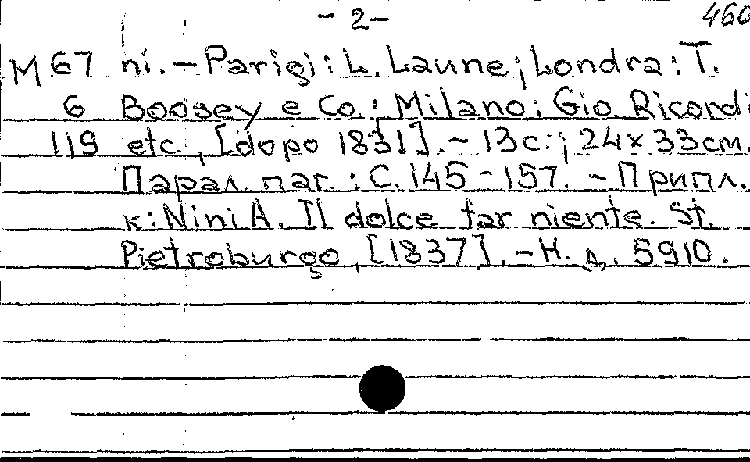 - 2 - 460
М 67 ni. - Parigi: L. Laune; Londra: T.
6 Boosey e Co.; Milano: Gio Ricordi
119 etc., [dopo 1831]. - 13 с.; 24×33 см.
Парал. паг.: С. 145-157. - Припл.
к: Nini A. Il dolce far niente. St.
Pietroburgo, [1837]. - Н. д. 5910.